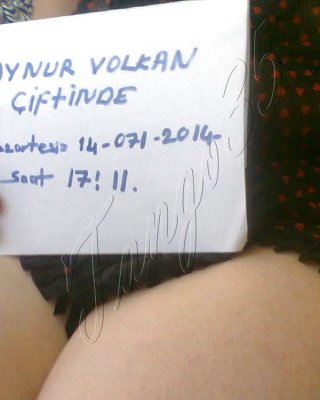 AYNUR VOLKAN
ÇİFTİNDE
14-071-2014-
saat 17!11.
Tango35